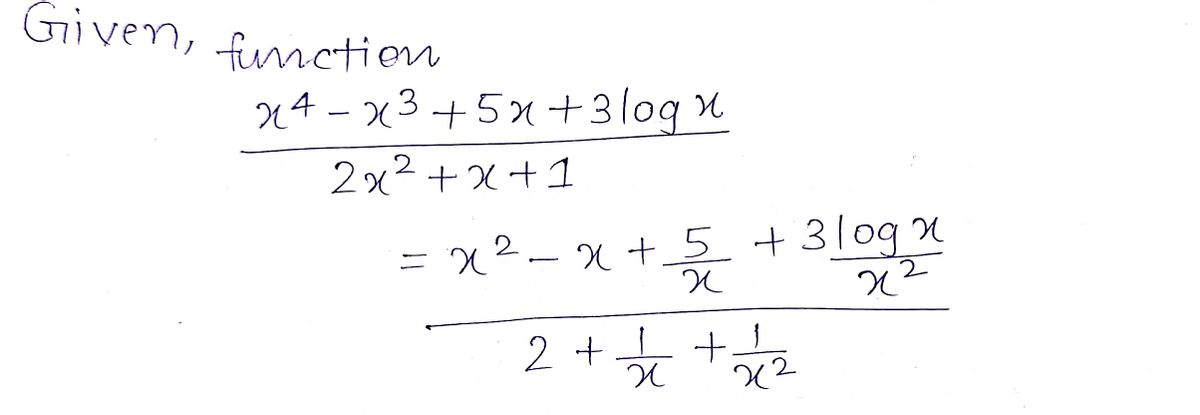 Given, function
x⁴ - x³ + 5x + 3log x
2x² + x + 1
= x² - x + 5/x + 3log x/x²
2 + 1/x + 1/x²